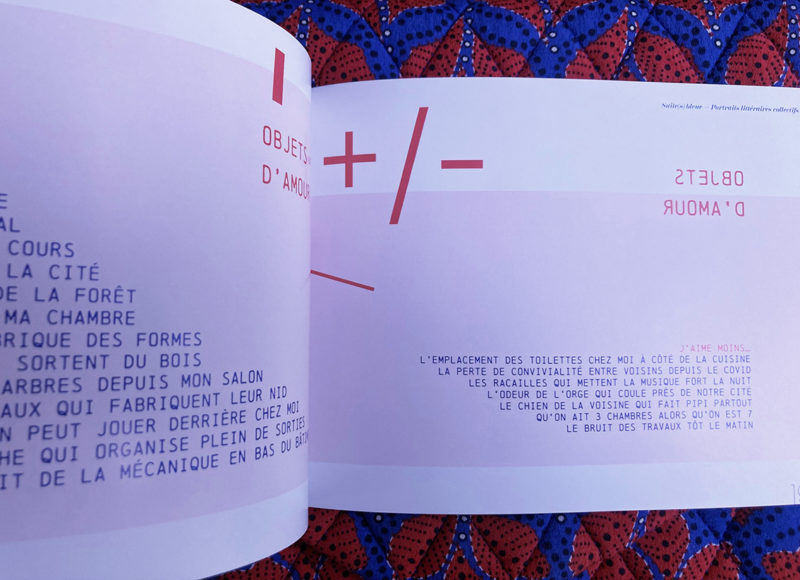 OBJETS
D'AMOUR
E
AL
COURS
LA CITÉ
DE LA FORÊT
MA CHAMBRE
BRIQUE DES FORMES
SORTENT DU BOIS
ARBRES DEPUIS MON SALON
AUX QUI FABRIQUENT LEUR NID
N PEUT JOUER DERRIÈRE CHEZ MOI
HE QUI ORGANISE PLEIN DE SORTIES
IT DE LA MÉCANIQUE EN BAS DU BÂTI
+/-
Suite(s) Ideur — Portraits littéraires collectifs
OBJETS
D'AMOUR
J'AIME MOINS…
L'EMPLACEMENT DES TOILETTES CHEZ MOI À CÔTÉ DE LA CUISINE
LA PERTE DE CONVIVIALITÉ ENTRE VOISINS DEPUIS LE COVID
LES RACAILLES QUI METTENT LA MUSIQUE FORT LA NUIT
L'ODEUR DE L'ORGE QUI COULE PRÈS DE NOTRE CITÉ
LE CHIEN DE LA VOISINE QUI FAIT PIPI PARTOUT
QU'ON AIT 3 CHAMBRES ALORS QU'ON EST 7
LE BRUIT DES TRAVAUX TÔT LE MATIN